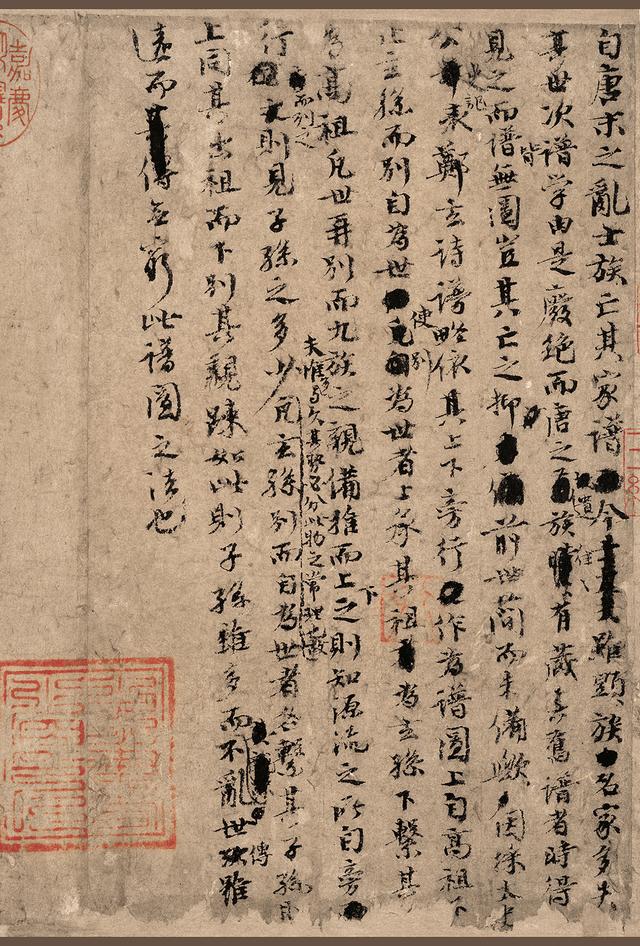 自唐末之亂士族亡其家譜今雖顯族名家多失
其世次譜學由是廢絕而唐之遺族往往有藏其舊譜者時得
見之而譜皆無圖豈其亡之抑前世簡而未備歟因採太史
公史記表鄭玄詩譜略依其上下旁行作為譜圖上自高祖下
止玄孫而別自為世使別為世者上承其祖為玄孫下繫其
為高祖凡世再別而九族之親備推而上下之則知源流之所自旁
行而列之則見子孫之多少夫惟多與久其勢必分此物之常理也凡玄孫別而自為世者各繫其子孫
上同其出祖而下別其親疎如此則子孫雖多而不亂世傳雖
遠而無窮此譜圖之法也
嘉慶